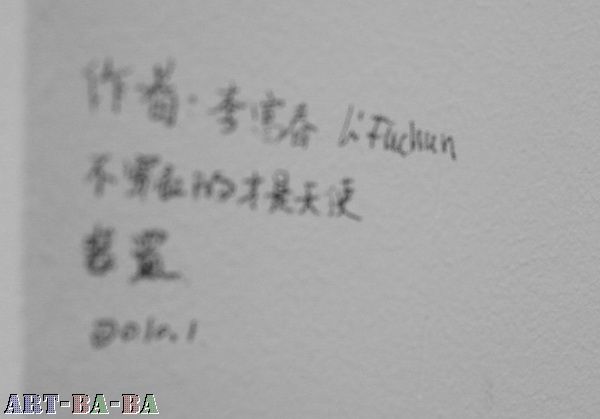 作者：李富春 Li Fuchun
不穿衣的才是天使
装置
2010.1
ART-BA-BA